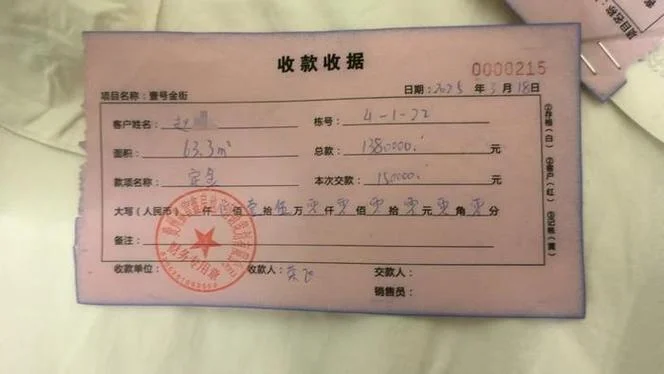 收款收据
0000215
项目名称：壹号金街 日期：2025年3月18日
客户姓名：赵 栋号：4-1-22
面积：63.3m² 总款：1380000. 元
款项名称：定金 本次交款：150000. 元
大写（人民币） 仟 佰壹拾伍万零仟零佰零拾零元零角零分
备注：
收款单位： 收款人： 交款人：
销售员：
①存根（白） ②客户（红） ③记帐（黄）
财务专用章
项目名称